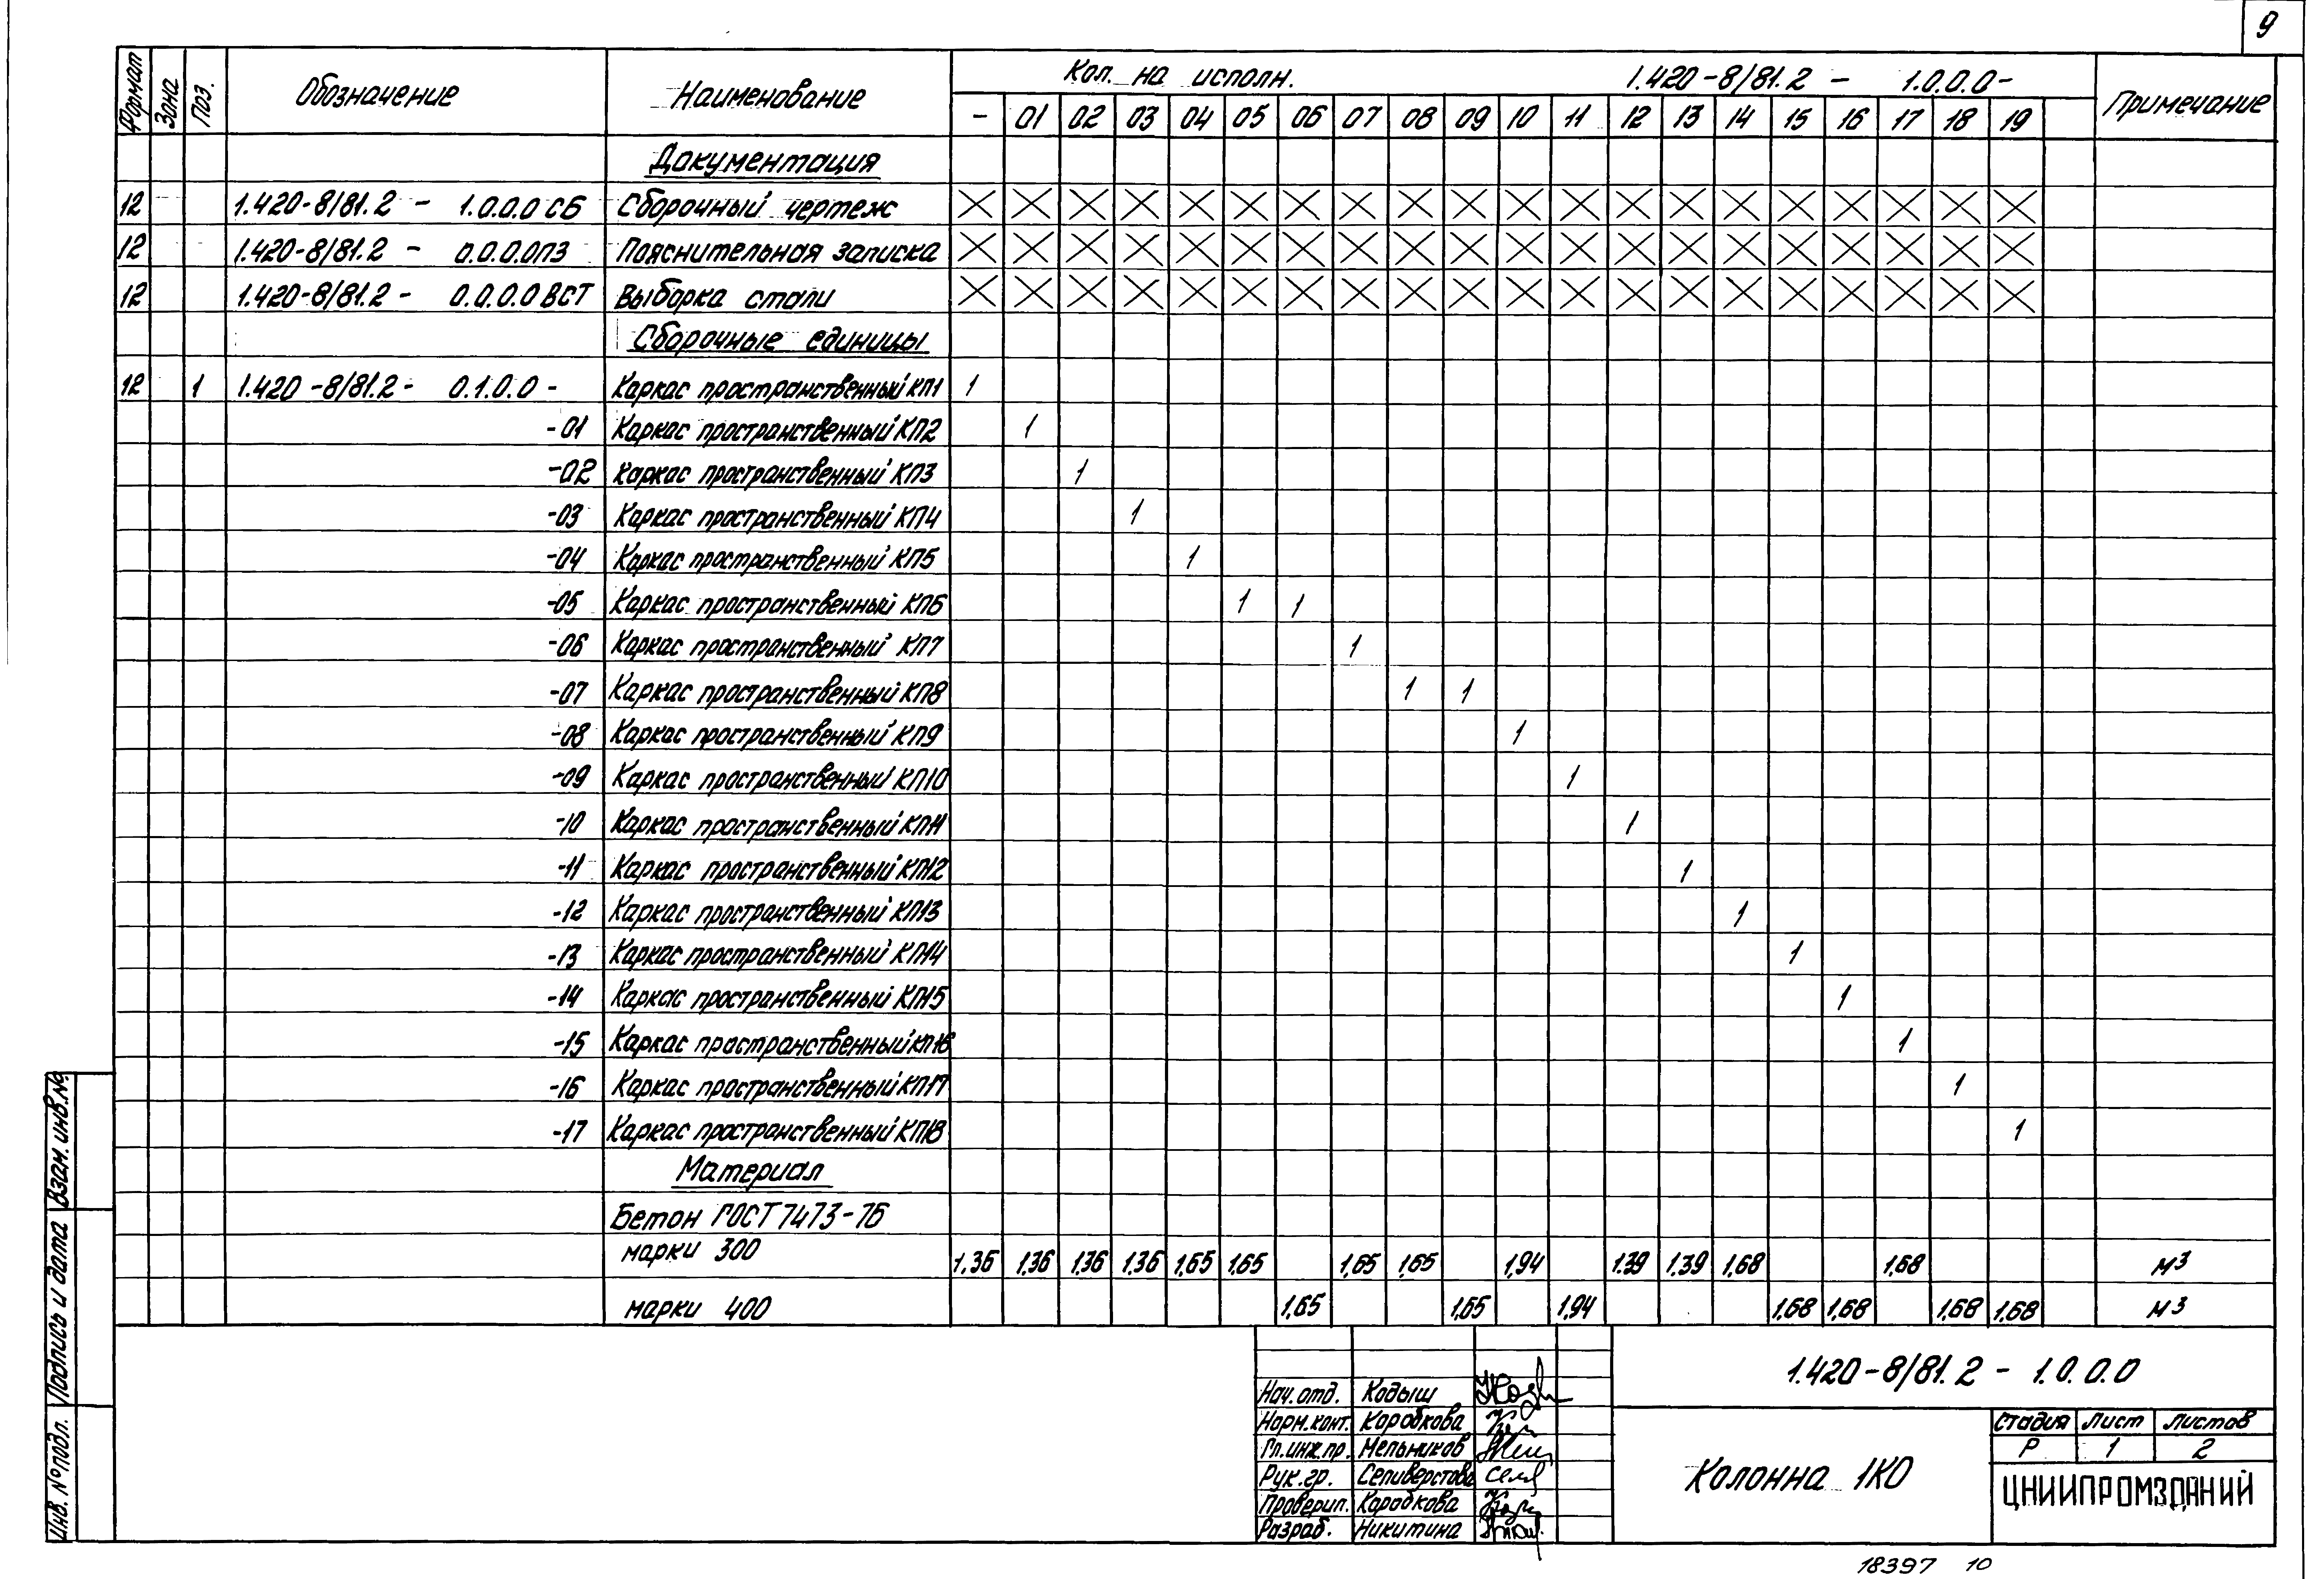 9
Формат Зона Поз. Обозначение Наименование Кол. на исполн. 1.420-8/81.2 - 1.0.0.0- Примечание
- 01 02 03 04 05 06 07 08 09 10 11 12 13 14 15 16 17 18 19
Документация
12 1.420-8/81.2 - 1.0.0.0 СБ Сборочный чертеж
12 1.420-8/81.2 - 0.0.0.0ПЗ Пояснительная записка
12 1.420-8/81.2 - 0.0.0.0 ВСТ Выборка стали
Сборочные единицы
12 1 1.420-8/81.2- 0.1.0.0 - Каркас пространственный КП1 1
-01 Каркас пространственный КП2 1
-02 Каркас пространственный КП3 1
-03 Каркас пространственный КП4 1
-04 Каркас пространственный КП5 1
-05 Каркас пространственный КП6 1 1
-06 Каркас пространственный КП7 1
-07 Каркас пространственный КП8 1 1
-08 Каркас пространственный КП9 1
-09 Каркас пространственный КП10 1
-10 Каркас пространственный КП11 1
-11 Каркас пространственный КП12 1
-12 Каркас пространственный КП13 1
-13 Каркас пространственный КП14 1
-14 Каркас пространственный КП15 1
-15 Каркас пространственный КП16 1
-16 Каркас пространственный КП17 1
-17 Каркас пространственный КП18 1
Материал
Бетон ГОСТ 7473-76
марки 300 1,36 1,36 1,36 1.36 1,65 1,65 1,65 1,65 1,94 1.39 1.39 1,68 1,68 м3
марки 400 1,65 1,65 1,94 1,68 1,68 1,68 1,68 м3
Инв. № подл. Подпись и дата Взам. инв. №
1.420-8/81.2 - 1.0.0.0
Нач. отд. Кодыш
Норм. конт. Коробкова
Гл. инж. пр. Мельников
Рук. гр. Селиверстова
Проверил. Коробкова
Разраб. Никитина
Колонна 1К0
Стадия Лист Листов
Р 1 2
ЦНИИПРОМЗДАНИЙ
18397 10